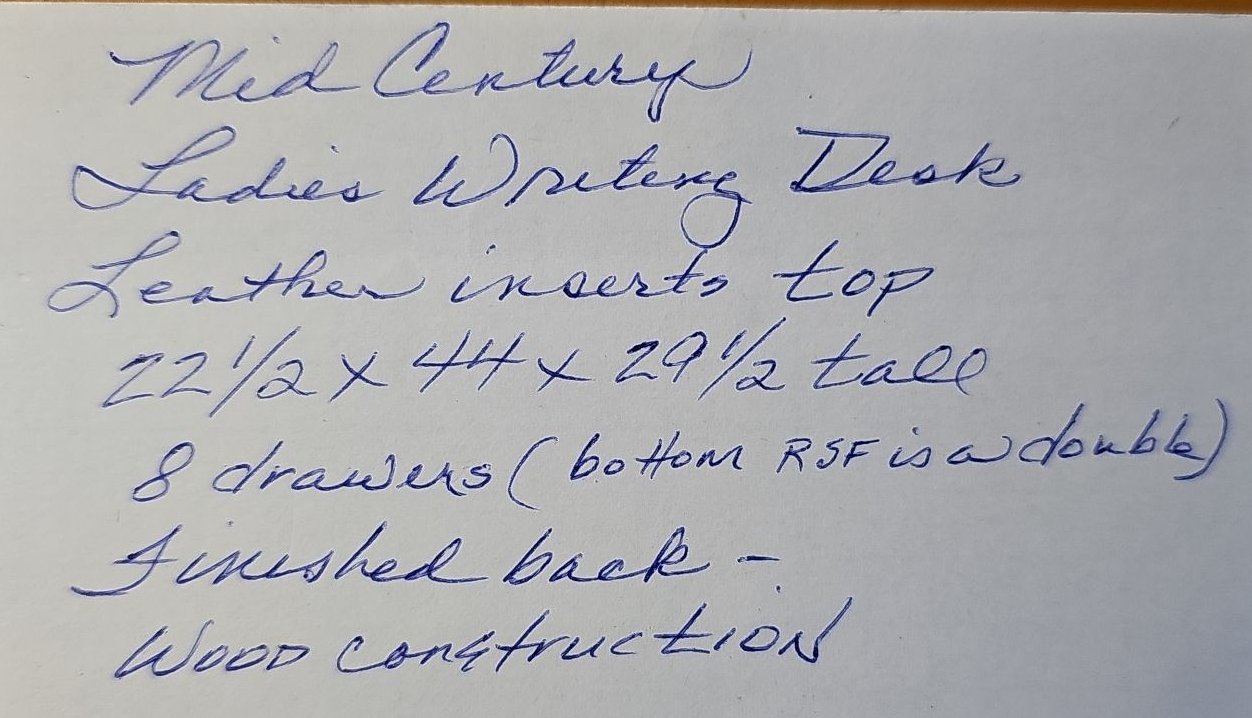 Mid Century
Ladies Writing Desk
Leather inserts top
22 1/2 x 44 x 29 1/2 tall
8 drawers (bottom RSF is a double)
Finished back -
Wood construction